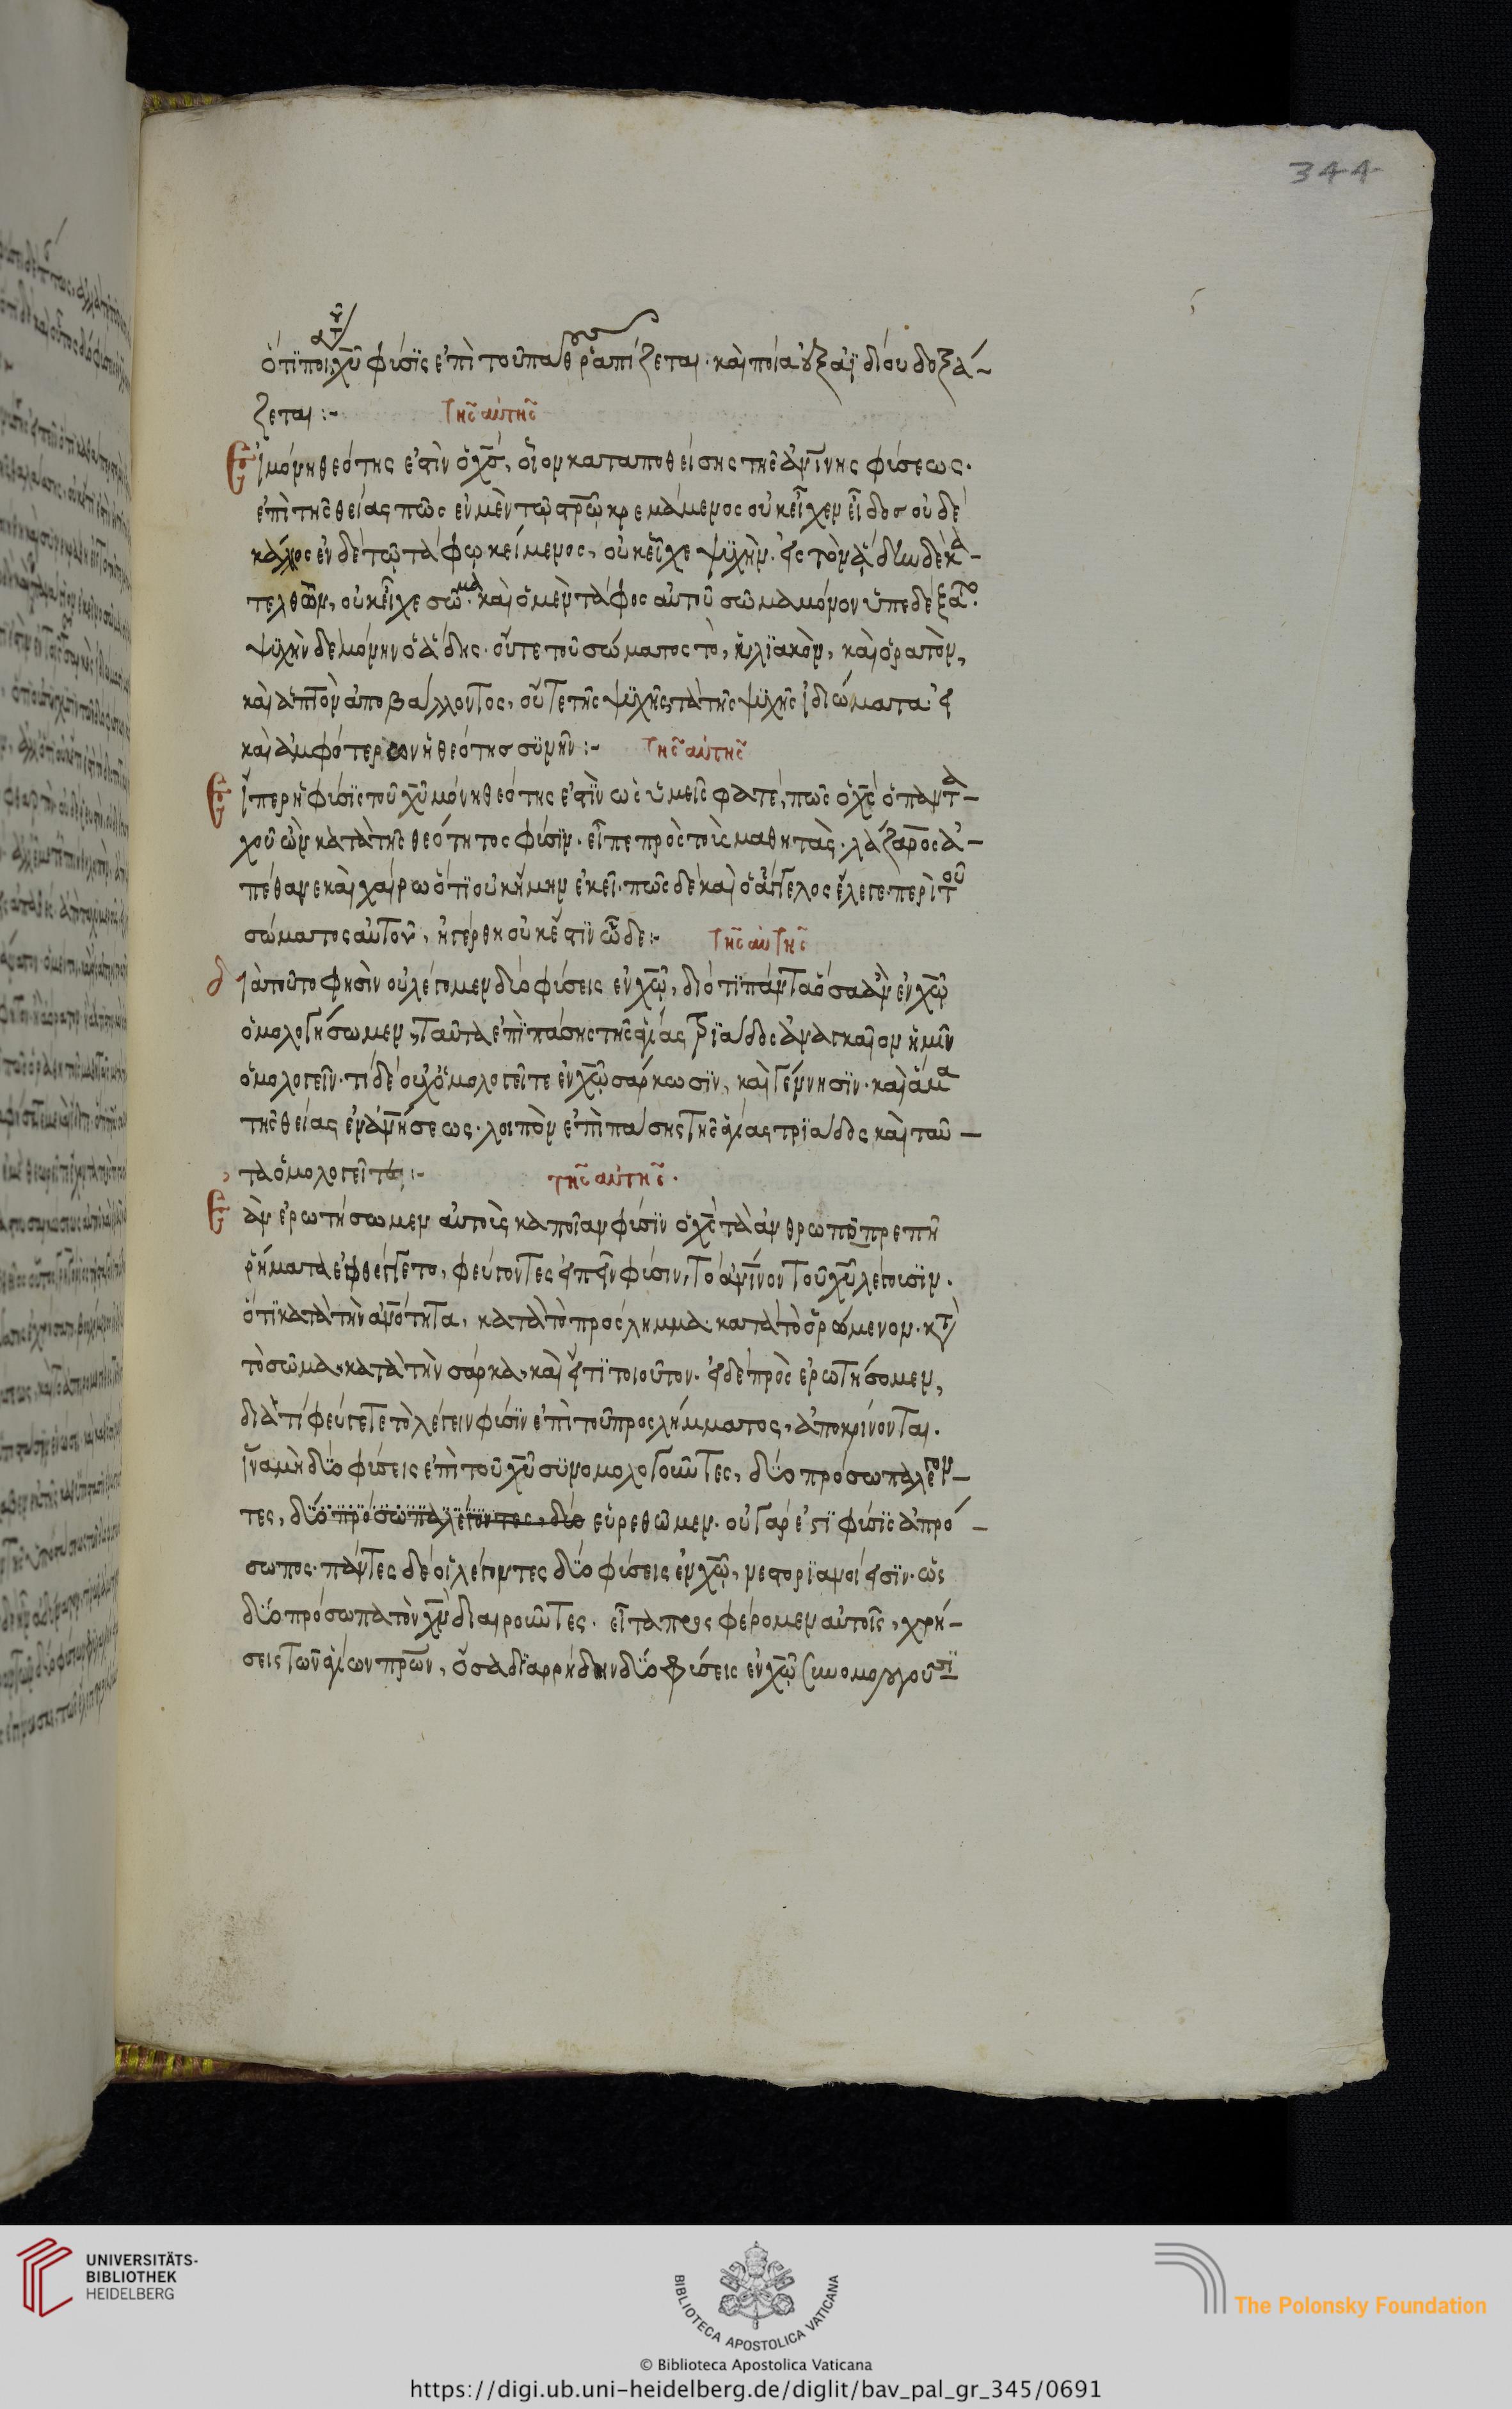 344
ὅτι ποία χυ φύσις ἐπὶ τοῦ πάθους ῥαπίζεται· καὶ ποία δοξάζει δι' οὗ δοξά-
ζεται:- τῆς αὐτῆς
Εἰ μόνη θεότης ἐστὶν ὁ χς, οἷον καταποθείσης τῆς ἀνίνης φύσεως·
ἐπὶ τῆς θείας πῶς ἐν μὲν τῷ στρῶ κρεμάμενος οὐκ εἶχεν εἶδος οὐδὲ
κάλλος ἐν δὲ τῷ τάφῳ κείμενος, οὐκ εἶχε ψυχήν. εἰς τὸν ἅδην δὲ κα-
τελθὼν, οὐκ εἶχε σῶμα· καὶ ὁ μὲν τάφος αὐτοῦ σῶμα μόνον ὑπεδέξατο·
ψυχὴν δὲ μόνην ὁ ἅδης· οὔτε τοῦ σώματος τὸ, ὑλιακὸν, καὶ ὁρατὸν,
καὶ ἁπτὸν ἀποβάλλοντος, οὔτε τῆς ψυχῆς τὰ τῆς ψυχῆς ἰδιώματα· εἰ
καὶ ἀμφότερων ἡ θεότης συνῆν:- τῆς αὐτῆς
Εἴπερ ἡ φύσις τοῦ χυ μόνη θεότης ἐστὶν ὡς ὑμεῖς φατέ, πῶς ὁ χς ὁ παντα-
χοῦ ὢν κατὰ τῆς θεότητος φύσιν. εἶπε πρὸς τοὺς μαθητάς· λάζαρος ἀ-
πέθανε καὶ χαίρω ὅτι οὐκ ἤμην ἐκεῖ· πῶς δὲ καὶ ὁ ἄγγελος ἔλεγε περὶ τοῦ
σώματος αὐτοῦ, ἠγέρθη οὐκ ἔστιν ὧδε:- τῆς αὐτῆς
διὰ τοῦτο φησὶν οὐ λέγομεν δύο φύσεις ἐν χῶ, διότι πάντα ὅσα ἂν ἐν χῶ
ὁμολογήσωμεν, ταῦτα ἐπὶ πάσης τῆς ἁγίας τριάδος ἀναγκαῖον ἡμῖν
ὁμολογεῖν· τί δὲ οὐχ ὁμολογεῖτε ἐν χῶ σάρκωσιν, καὶ γέννησιν· καὶ ἅμα
τῆς θείας ἐνανήσεως· λοιπὸν ἐπὶ πάσης τῆς ἁγίας τριάδος καὶ ταῦ-
τα ὁμολογεῖται:- τῆς αὐτῆς.
Ἐὰν ἐρωτήσωμεν αὐτοὺς κα ποίαν φύσιν ὁ χς τὰ ἀνθρωποπρεπῆ
ῥήματα ἐφθέγγετο, φεύγοντες εἰπεῖν φύσιν, τὸ ἀνινον τοῦ χυ λέγουσιν.
ὅτι κατὰ τὴν ἀνότητα, κατὰ τὸ πρόσλημμα· κατὰ τὸ ὁρώμενον· κτ
τὸ σῶμα· κατὰ τὴν σάρκα· καὶ εἴ τι τοιοῦτον· εἰ δὲ πρὸς ἐρωτήσομεν,
διὰ τί φεύγετε τὸ λέγειν φύσιν ἐπὶ τοῦ προσλήμματος, ἀποκρίνονται.
ἵνα μὴ δύο φύσεις ἐπὶ τοῦ χυ συνομολογοῦντες, δύο πρόσωπα λέγον-
τες, δύο πρόσωπα λέγοντες, δύο εὑρεθῶμεν. οὐ γάρ ἐστι φύσις ἀπρό-
σωπος· πάντες δὲ οἱ λέγοντες δύο φύσεις ἐν χῶ, νεστοριανοί εἰσιν· ὡς
δύο πρόσωπα τὸν χν διαιροῦντες. εἶτα προσφέρομεν αὐτοῖς, χρή-
σεις τῶν ἁγίων πρων, ὅσα διαρρήδην δύο φύσεις ἐν χῶ συνομολογοῦσι
UNIVERSITÄTS-
BIBLIOTHEK
HEIDELBERG
BIBLIOTECA APOSTOLICA VATICANA
The Polonsky Foundation
© Biblioteca Apostolica Vaticana
https://digi.ub.uni-heidelberg.de/diglit/bav_pal_gr_345/0691